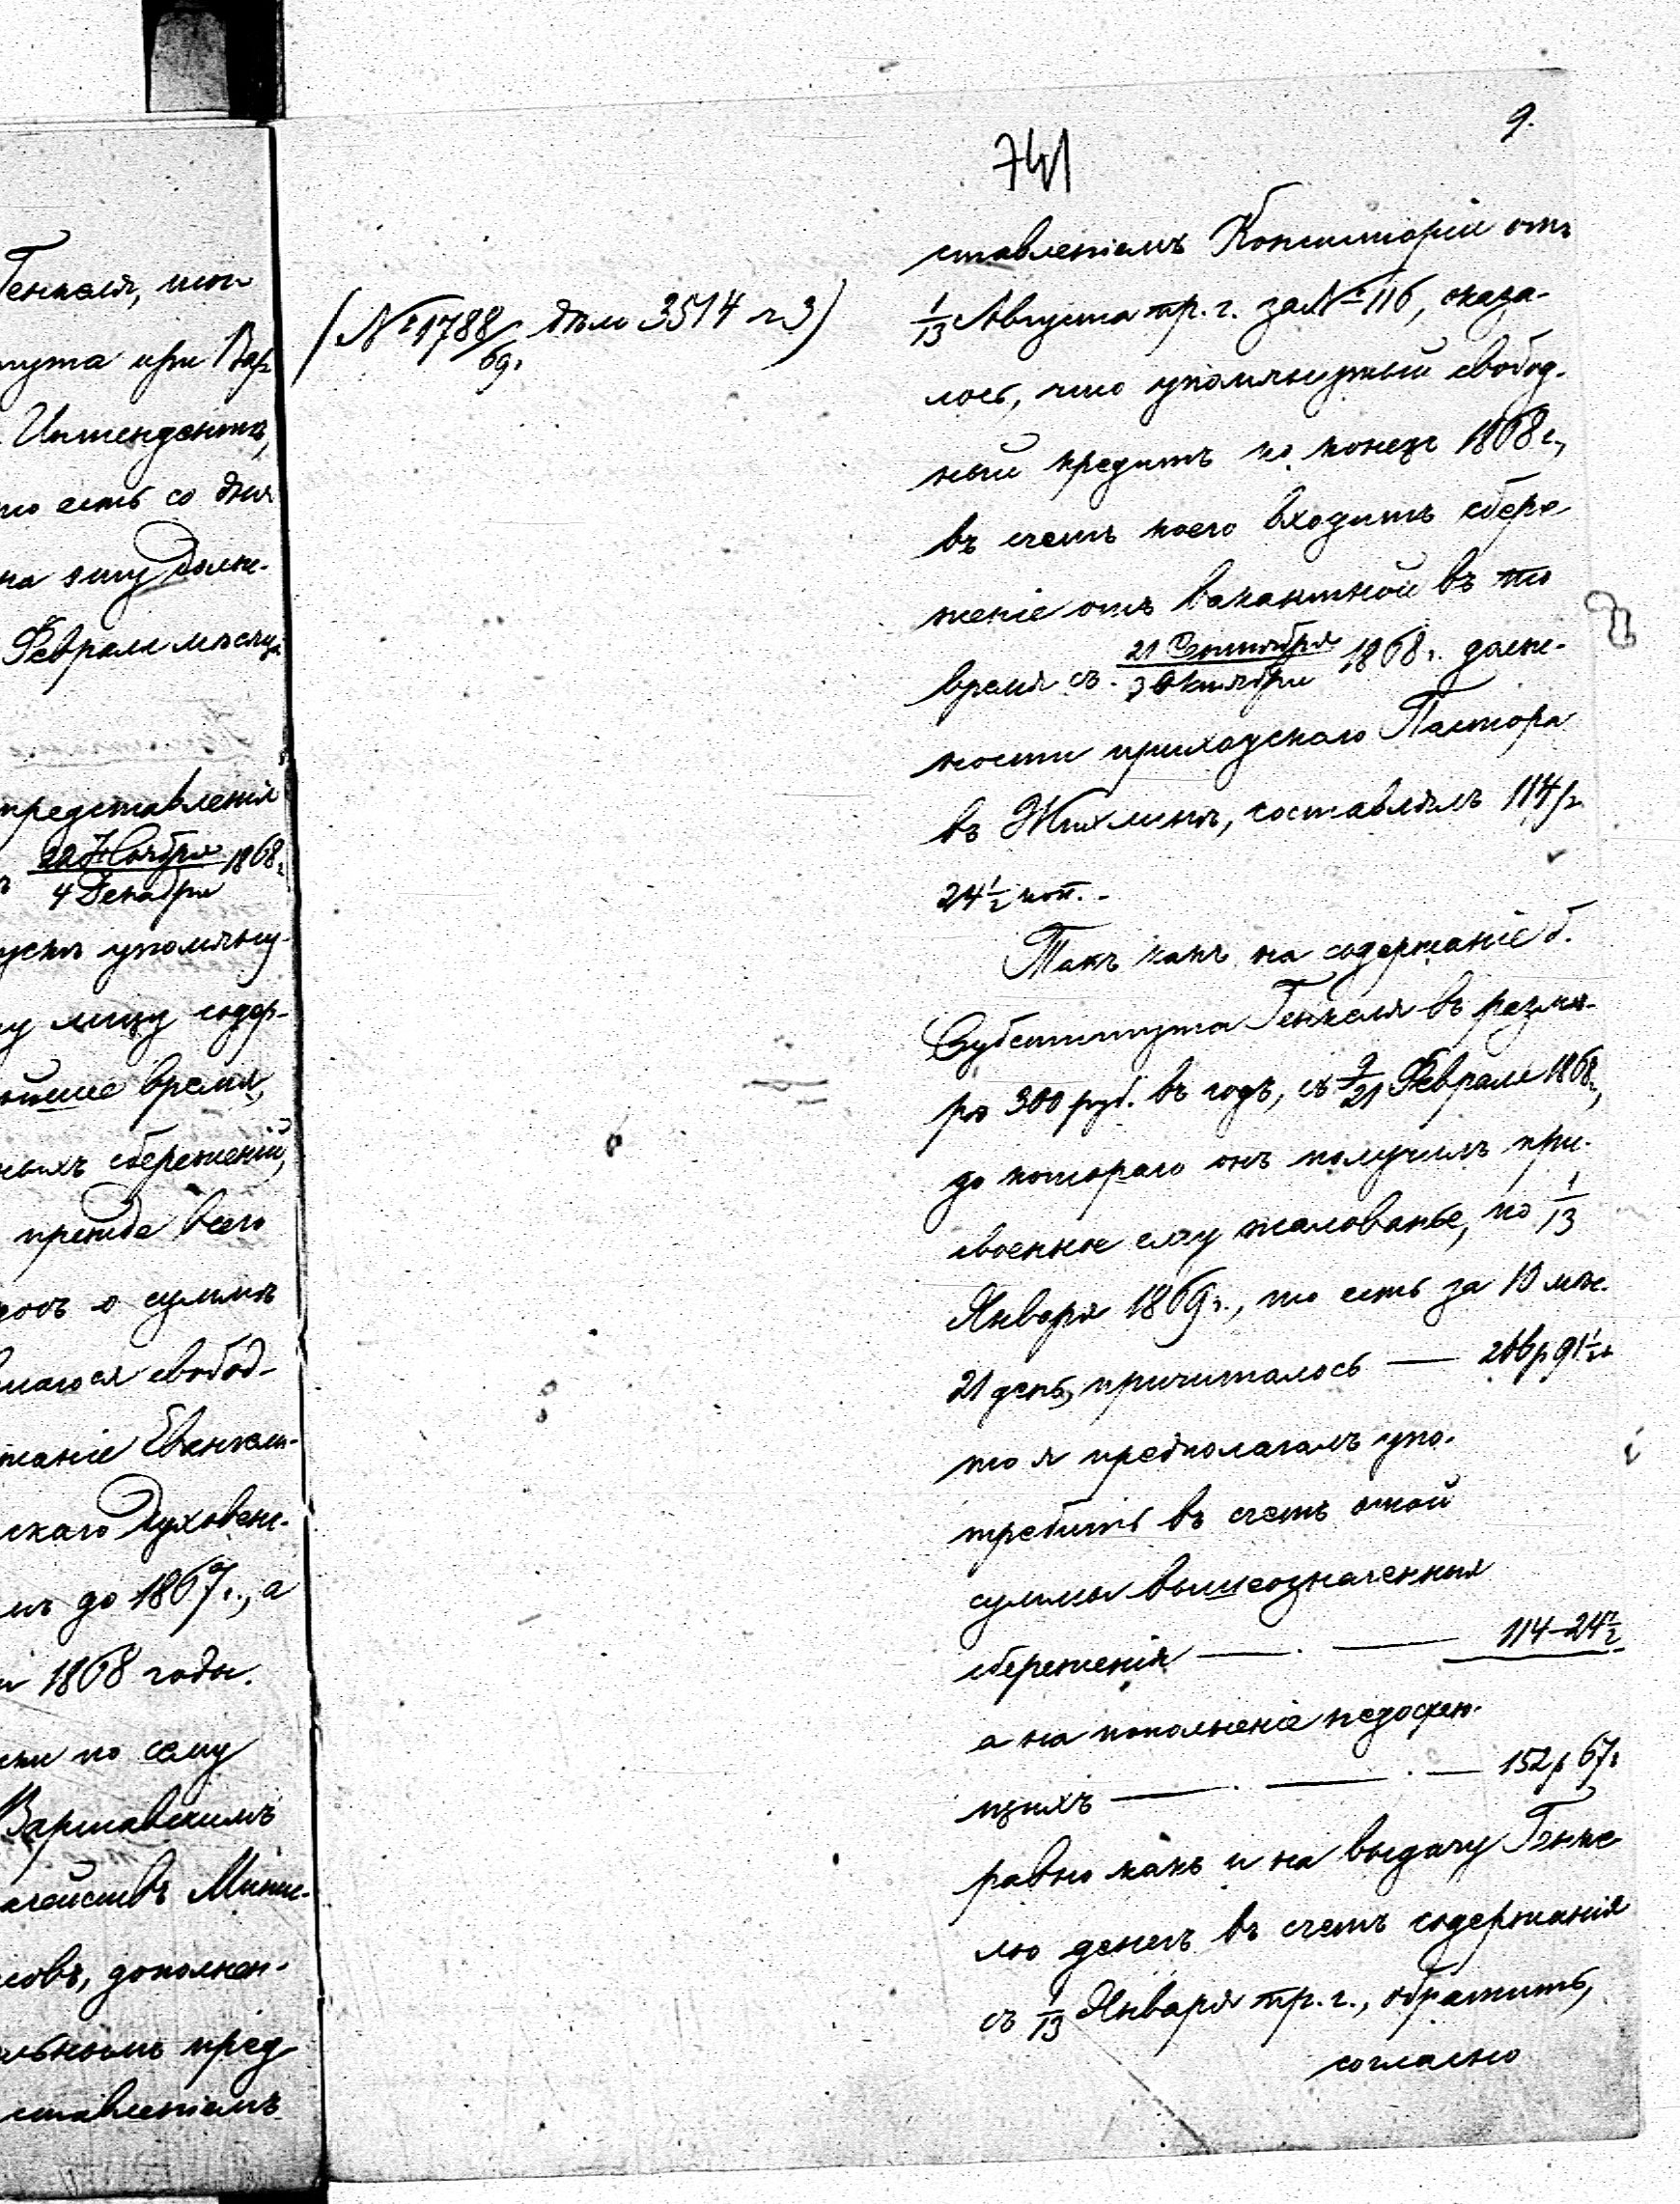 Генкеля, мои
тута при Вар
Интендентѣ,
то есть со дня
на эту долж-
Февраля мѣсяца
представленія
22 Ноября
4 Декабря 1868 г.
упомяну-
му лицу содер-
время,
ныхъ сбереженій,
прежде всего
о суммѣ
шагося свобод-
жаніе Евангели-
скаго Духовен-
до 1867 г., а
и 1868 годы.
по сему
Варшавскимъ
Казначействъ Минис-
совъ, дополнен-
ельнымъ пред
ставленіемъ
741
9.
(№ 1788/69. дѣло 3514 л 3)
ставленіемъ Консисторіи отъ
1/13 Августа пр. г. за № 116, оказа-
лось, что упомянутый свобод-
ный кредитъ по конецъ 1868 г.,
въ счетъ коего входитъ сбере-
женіе отъ вакантной въ то
время съ 21 Сентября
3 Октября 1868 г. долж-
ности приходскаго Пастора
въ Жихлинѣ, составлялъ 114 р.
24 1/2 коп.
Такъ какъ на содержаніе б.
Субститута Генкеля въ размѣ-
рѣ 300 руб. въ годъ, съ 9/21 Февраля 1868 г.,
до котораго онъ получилъ при-
своенное ему жалованье, по 1/13
Января 1869 г., то есть за 10 мѣс.
21 день, причиталось — 266 р 91 1/2 к
то я предполагалъ упо-
требить въ счетъ этой
суммы вышеозначенныя
сбереженія — 114-24 1/2
а на пополненіе недостаю-
щихъ — 152 р 67 к
равно какъ и на выдачу Генке
лю денегъ въ счетъ содержанія
съ 1/13 Января пр. г., обратить,
согласно